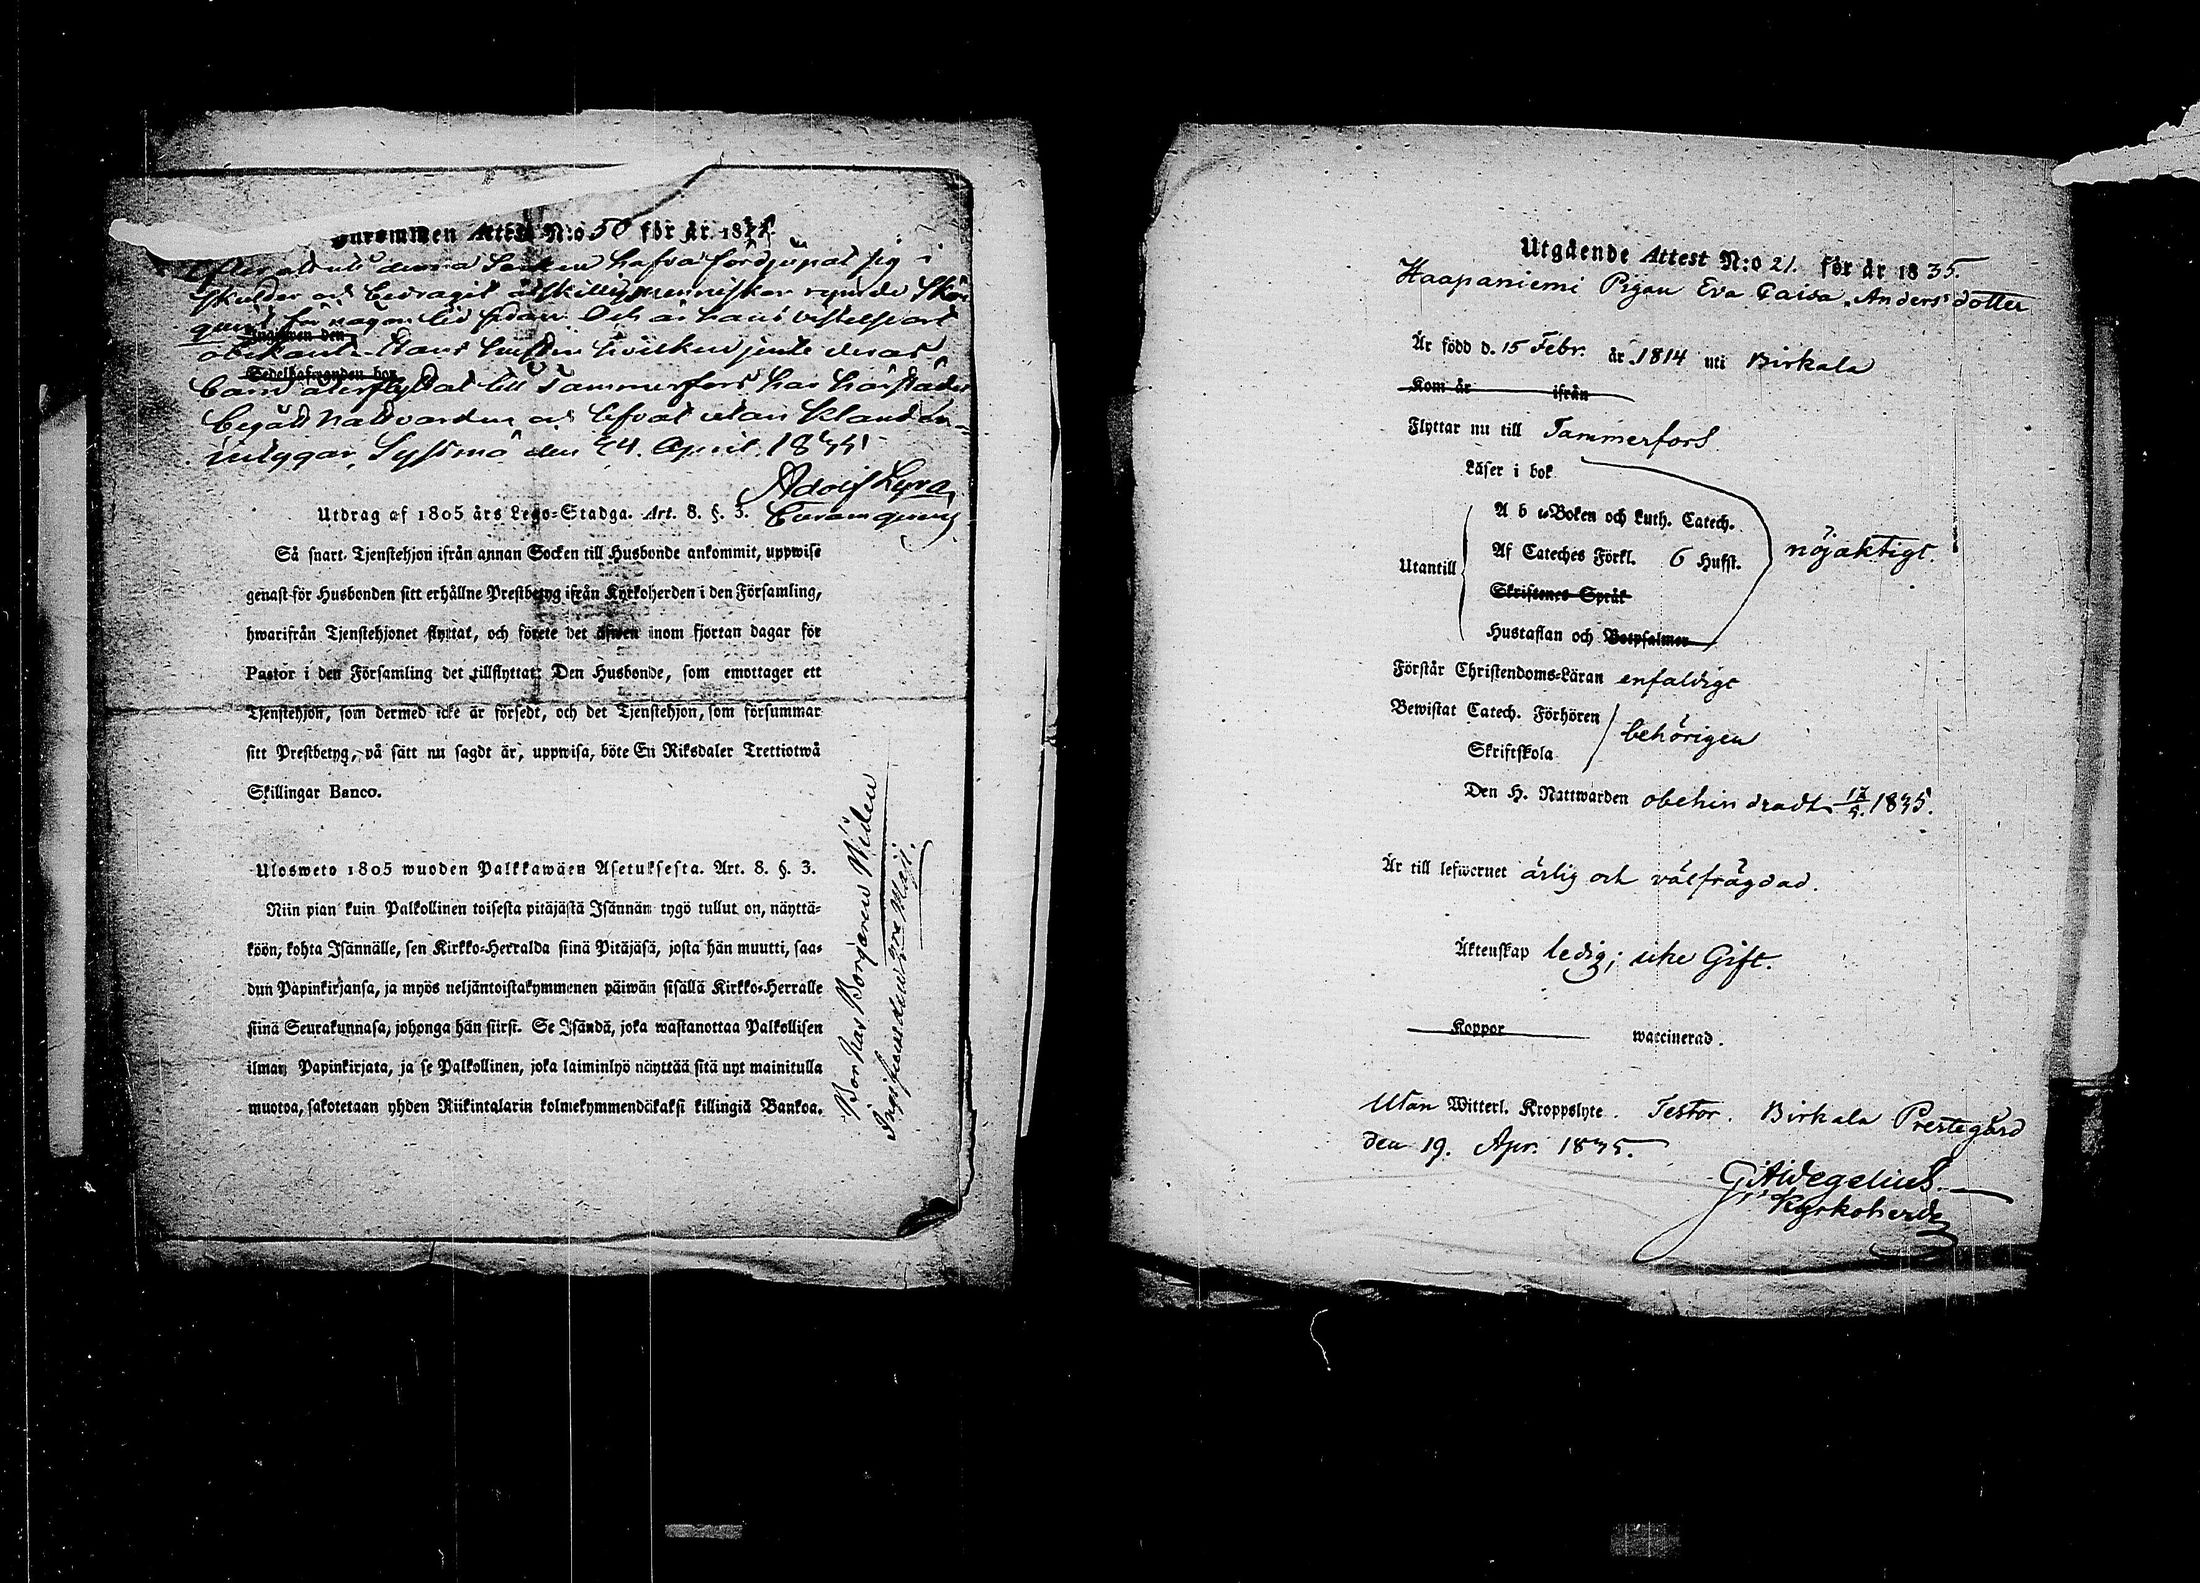 Inkommen Attest N:o 50 för år 1835
Efter at uti denna Socken hafva fördjupat sig i
skulder och bedragit åtskillig menniskor rymde
för någon tid sedan Och är hans vistelseort
Angifwen den
obekant. Hans hustru hvilken jemte deras
Sedelhafwanden bor
barn återflyttat till Tammerfors har härstädes
begått Nattvarden och lefvat utan
den 24. April 1835
Adolf
Utdrag af 1805 års Lego-Stadga. Art. 8. §. 3.
Så snart Tjenstehjon ifrån annan Socken till Husbonde ankommit, uppwise
genast för Husbonden sitt erhållne Prestbetyg ifrån Kyrkoherden i den Församling,
hwarifrån Tjenstehjonet flyttat, och förete det äfwen inom fjortan dagar för
Pastor i den Församling det tillflyttat: Den Husbonde, som emottager ett
Tjenstehjon, som dermed icke är försedt, och det Tjenstehjon, som försummar
sitt Prestbetyg, på sätt nu sagdt är, uppwisa, böte En Riksdaler Trettiotwå
Skillingar Banco.
Ulosweto 1805 wuoden Palkkawäen Asetuksesta. Art. 8. §. 3.
Niin pian kuin Palkollinen toisesta pitäjästä Isännän tygö tullut on, näyttä-
köön, kohta Isännälle, sen Kirkko-Herralda siinä Pitäjäsä, josta hän muutti, saa-
dun Papinkirjansa, ja myös neljäntoistakymmenen päiwän sisällä Kirkko-Herralle
siinä Seurakunnasa, johonga hän siirsi. Se Isändä, joka wastanottaa Palkollisen
ilman Papinkirjata, ja se Palkollinen, joka laiminlyö näyttää sitä nyt mainitulla
muotoa, sakotetaan yhden Riikintalarin kolmekymmendäkaksi killingiä Bankoa.
Bor hos Borgaren Widen
den Maji.
Utgående Attest N:o 21. för år 1835.
Haapaniemi Pigan Eva Caisa Andersdotter
Är född d. 15 Febr. år 1814 uti Birkala
Kom år ifrån
Flyttar nu till Tammerfors.
Läser i bok
A b c-Boken och Luth. Catech.
Utantill Af Cateches Förkl. 6 Hufst. nöjaktigt.
Skriftenes Språk
Hustaflan och Botpsalmer
Förstår Christendoms-Läran enfaldigt
Bewistat Catech. Förhören behörigen
Skriftskola
Den H. Nattwarden obehindradt 17/4. 1835.
Är till lefwernet ärlig och välfrägdad.
Äktenskap ledig; icke Gift.
Koppor waccinerad.
Utan Witterl. Kroppslyte. Testor. Birkala Prestegård
den 19. Apr. 1835.
G A Wegelius.
Kyrkoherde